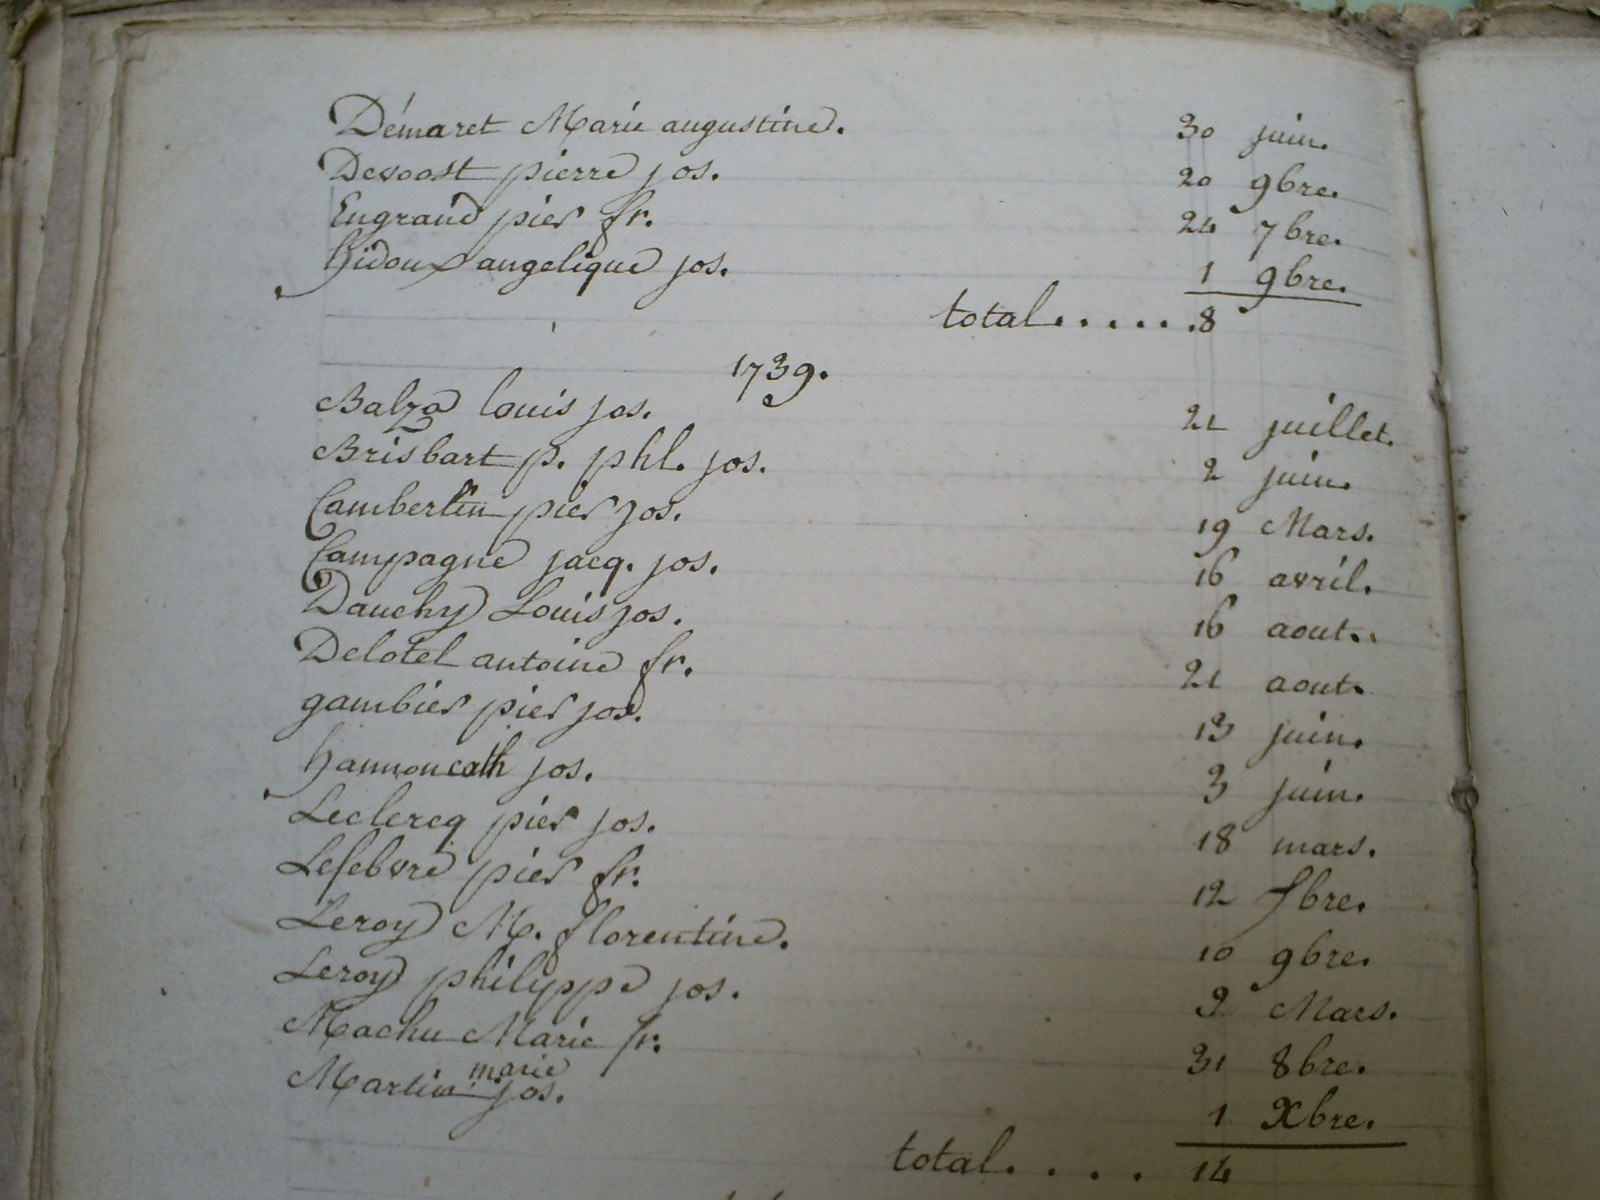 Démaret Marie augustine. 30 juin.
Devoost pierre jos. 20 9bre.
Engrand pier fr. 24 7bre.
hidoux angelique jos. 1 9bre.
total...... 8
1739.
Balza louis jos. 21 juillet.
Brisbart p. phl. jos. 2 juin.
Camberlin pier jos. 19 Mars.
Campagne jacq. jos. 16 avril.
Dauchy Louis jos. 16 aout.
Delotel antoine fr. 21 aout.
gambier pier jos. 13 juin.
hannon cath jos. 3 juin.
Leclercq pier jos. 18 mars.
Lefebvre pier fr. 12 fbre.
Leroy M. florentine. 10 9bre.
Leroy philippe jos. 9 Mars.
Machu Marie fr. 31 8bre.
Martin marie jos. 1 Xbre.
total.... 14